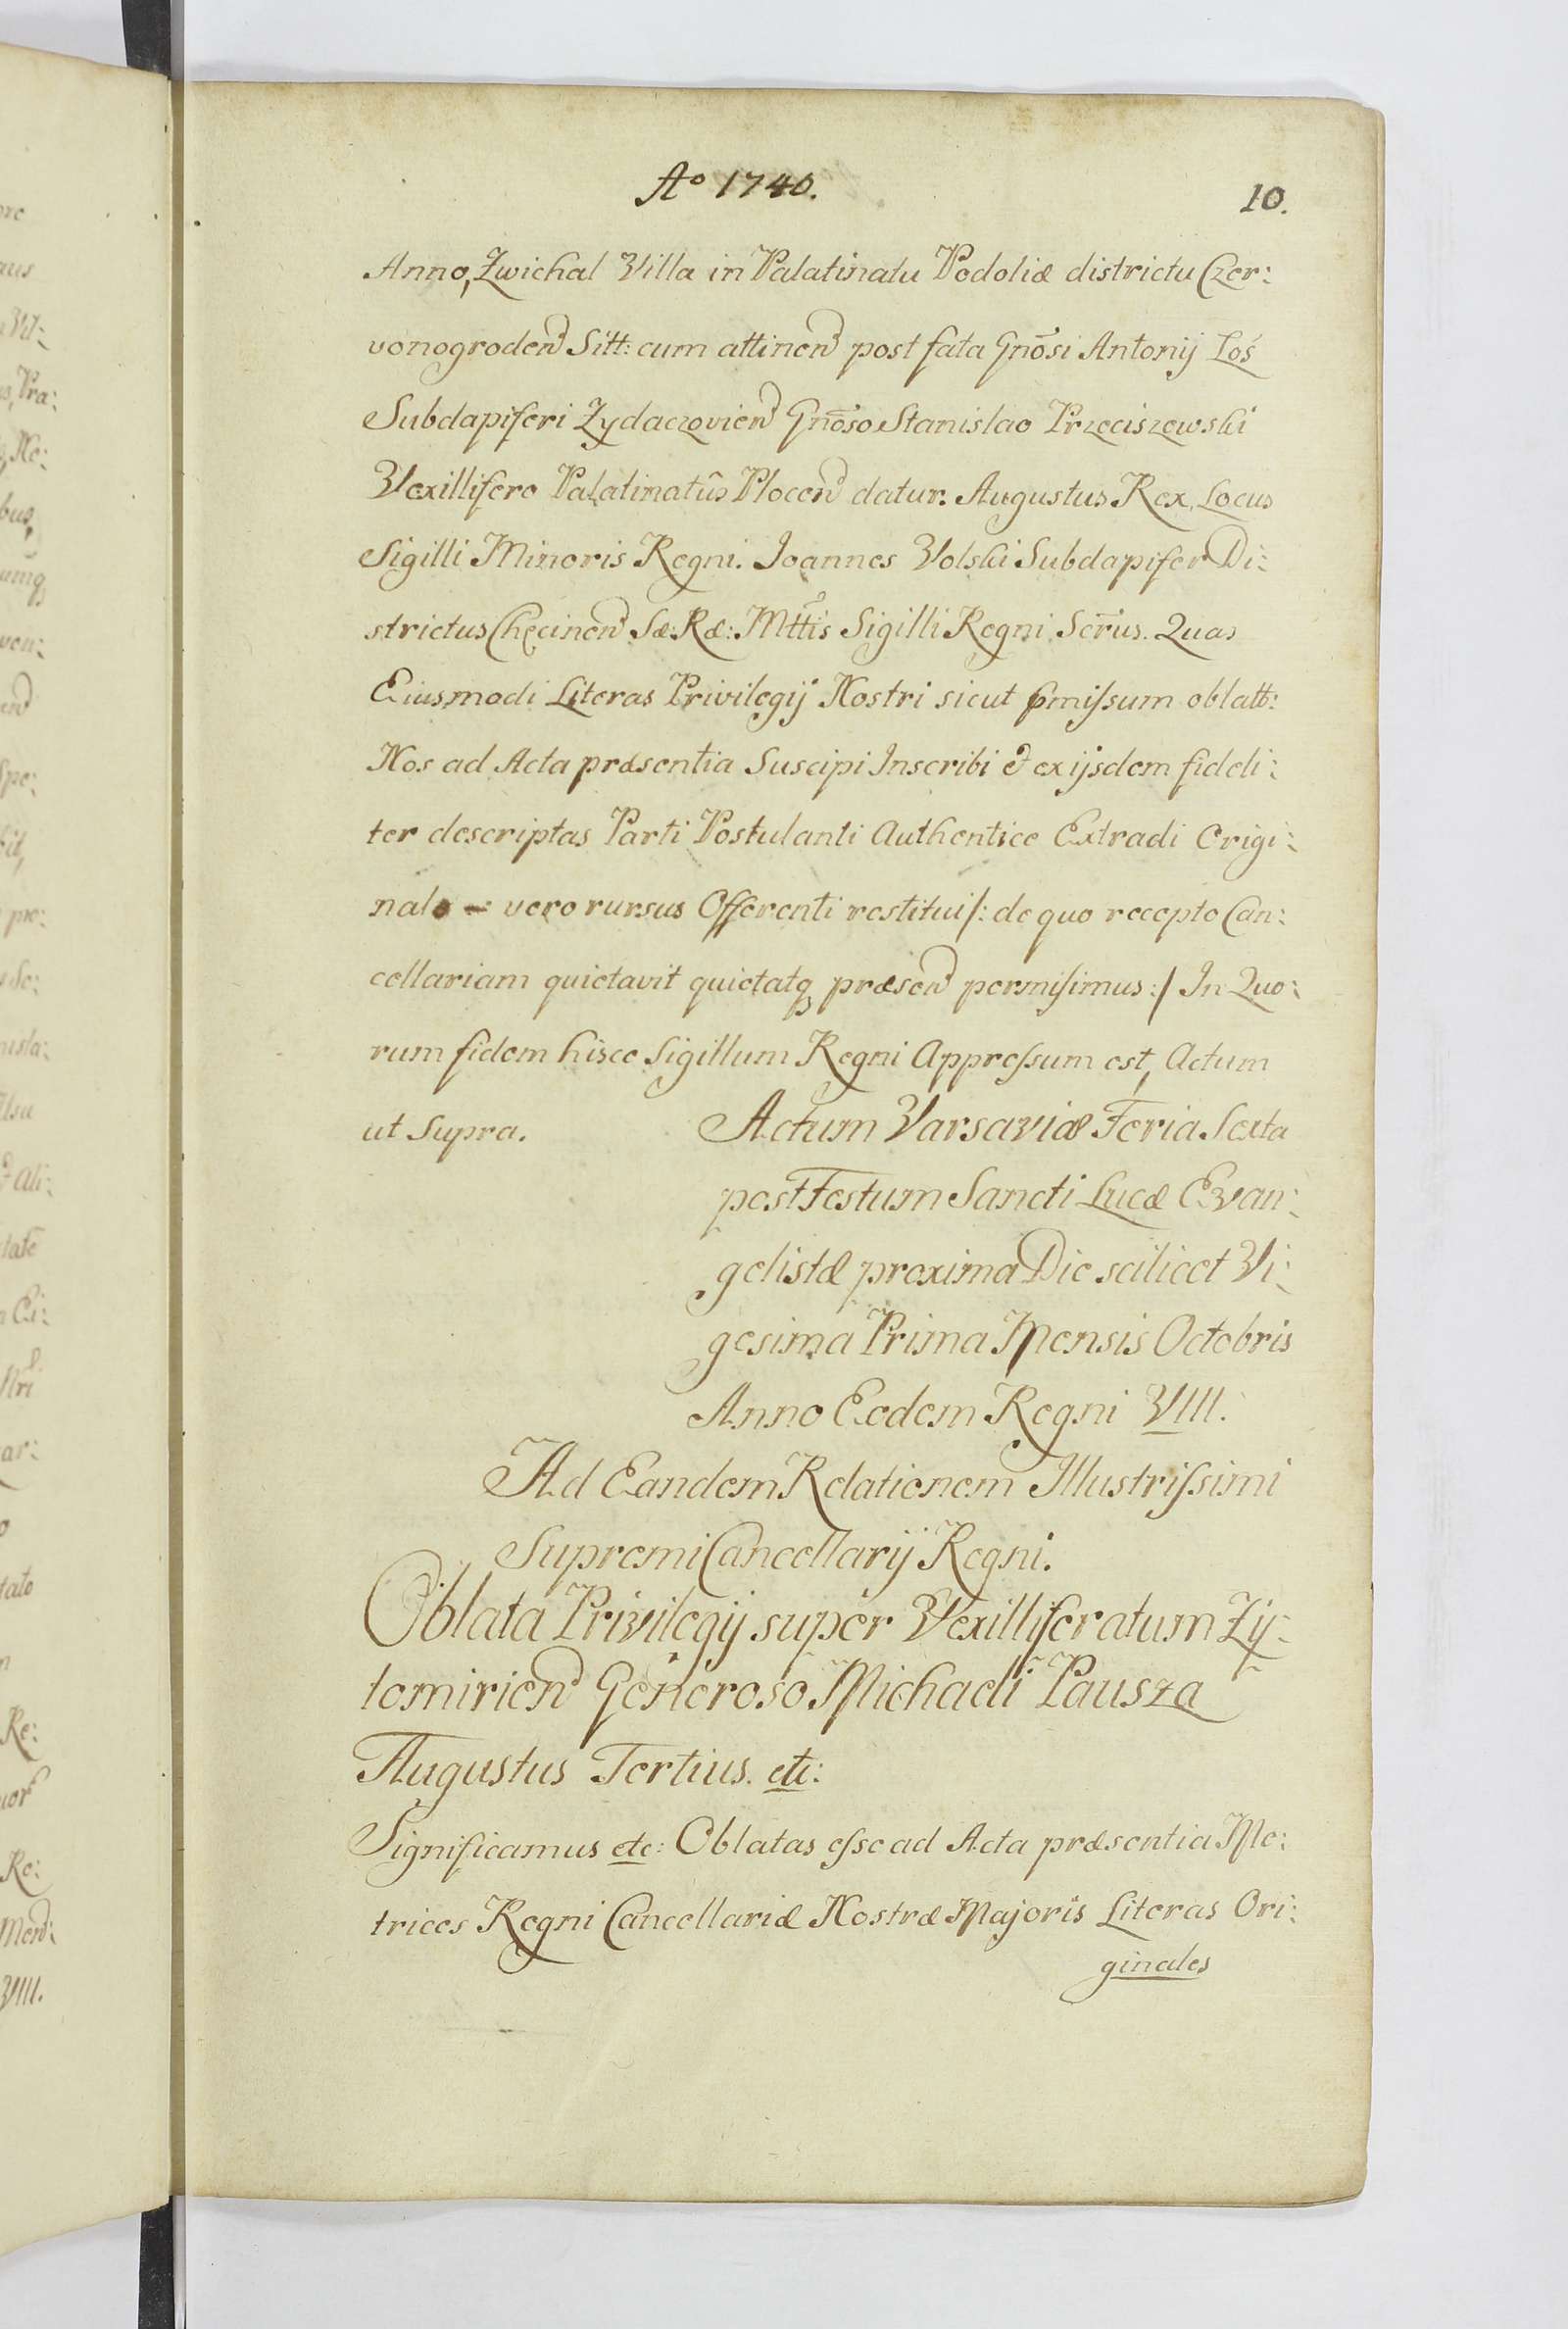 Aº 1740.
10.
Anno, Zwichal Villa in Palatinatu Podoliæ districtu Czer:
vonogroden Sitt: cum attinen post fata Gnōsi Antonij Łoś
Subdapiferi Zydaczovien Gnōso Stanislao Przeciszewski
Vexillifero Palatinatûs Plocen datur. Augustus Rex, Locus
Sigilli Minoris Regni. Joannes Volski Subdapifer Di:
strictus Chęcinen Sæ: Ræ: Mttis Sigilli Regni Scrus. Quas
Eiusmodi Literas Privilegij Nostri sicut pmissum oblatt:
Nos ad Acta præsentia Suscipi Inscribi & ex ijsdem fideli:
ter descriptas Parti Postulanti Authentice Extradi Origi:
nale – vero rursus Offerenti restitui /: de quo recepto Can:
cellariam quietavit quietatq præsen permisimus :/ In Quo:
rum fidem hisce Sigillum Regni Appressum est, Actum
ut Supra.
Actum Varsaviæ Feria Sexta
post Festum Sancti Lucæ Evan:
gelistæ proxima Die scilicet Vi:
gesima Prima Mensis Octobris
Anno Eodem Regni VIII.
Ad Eandem Relationem Illustrissimi
Supremi Cancellarij Regni.
Oblata Privilegij super Vexilliferatum Zy:
tomirien Generoso Michaeli Pausza
Augustus Tertius. etc:
Significamus etc: Oblatas esse ad Acta præsentia Me:
trices Regni Cancellariæ Nostræ Majoris Literas Ori:
ginales